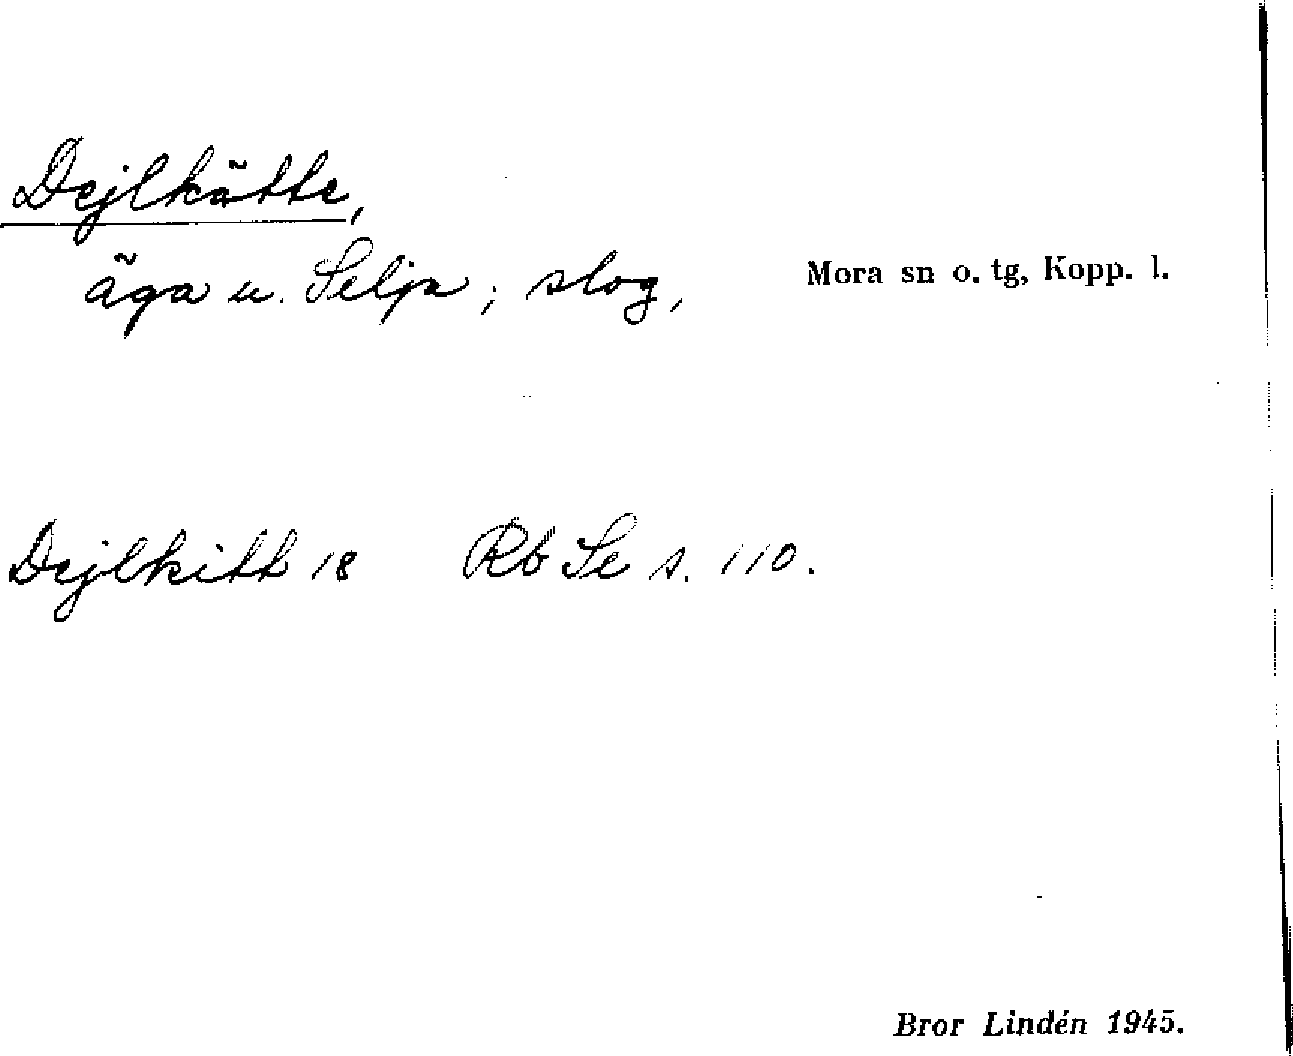 Dejlkätte,
äga u. Selja; slog,
Mora sn o. tg, Kopp. l.
Dejlkitt 18 Rb Se s. 110.
Bror Lindén 1945.